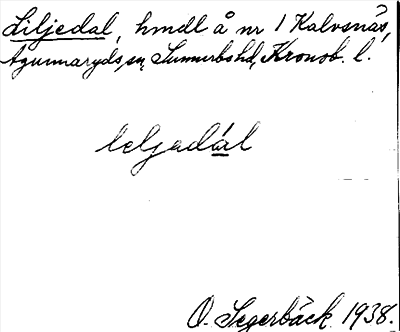 Liljedal, hmdl å nr 1 Kalvsnäs,
Agunnaryds sn, Sunnerbo hd, Kronob. l.
leljadál
O. Segerbäck 1938.